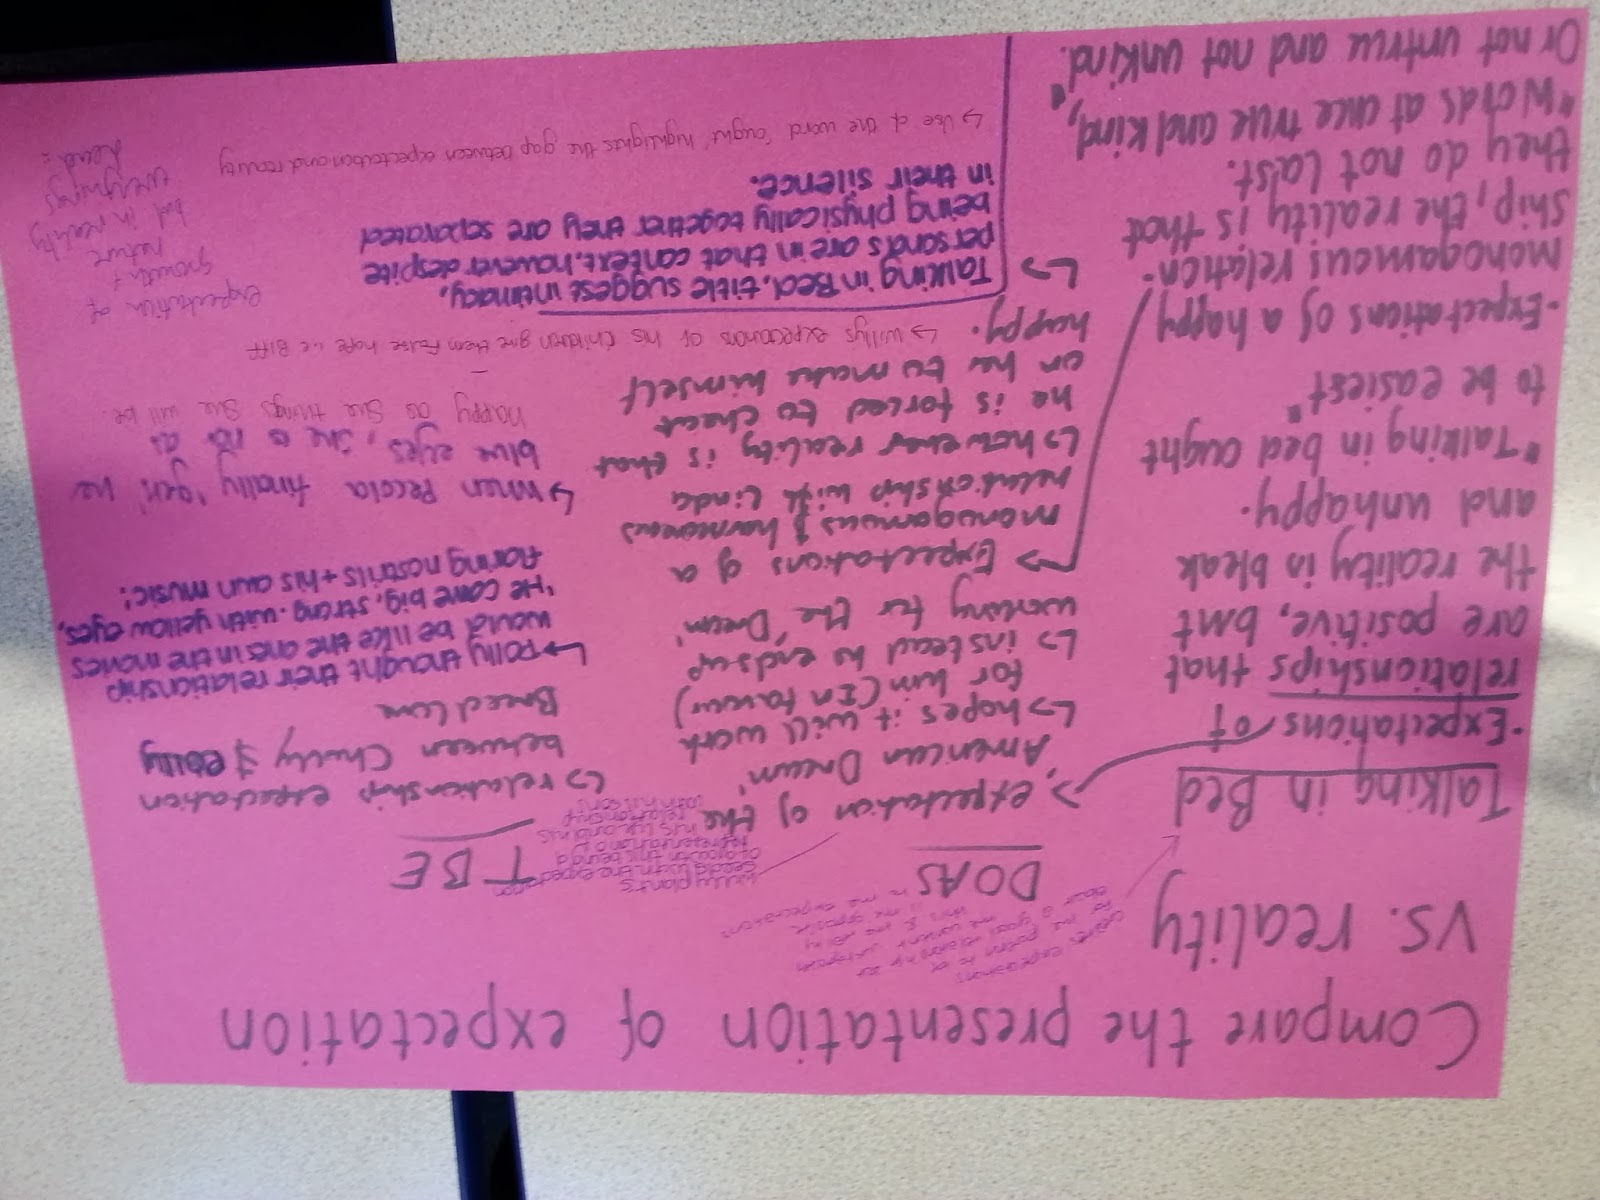 Compare the presentation of expectation
vs. reality
Talking in Bed
·Expectations of
relationships that
are positive, but
the reality is bleak
and unhappy.
"Talking in bed ought
to be easiest"
-Expectations of a happy
monogamous relation-
ship, the reality is that
they do not last.
"Words at once true and kind,
Or not untrue and not unkind."
DOAS
→ expectation of the
'American Dream'
↳ hopes it will work
for him (In favour)
↳ instead he ends up
working for the 'Dream'
→ Expectations of a
monogamous & harmonous
relationship with Linda
↳ however reality is that
he is forced to cheat
on her to make himself
happy.
↳
willy plants
seeds with the expectation
of growth this being a
representation of
his life and his
relationship
with his sons
TBE
↳ relationship expectation
between Cholly & Polly
Breedlove
↳ Polly thought their relationship
would be like the ones in the movies
'He came big, strong, with yellow eyes,
flaring nostrils + his own music'.
↳ When Pecola finally 'gets' he
blue eyes, she is not as
happy as she things she will be.
↳ Willys expectations of his children give them false hope i.e BIFF
Talking in Bed, title suggest intimacy,
persona's are in that context, however despite
being physically together they are separated
in their silence.
↳ Use of the word 'ought' highlights the gap between expectation and reality
expectation of
growth +
nature
but in reality
everythings
dead.